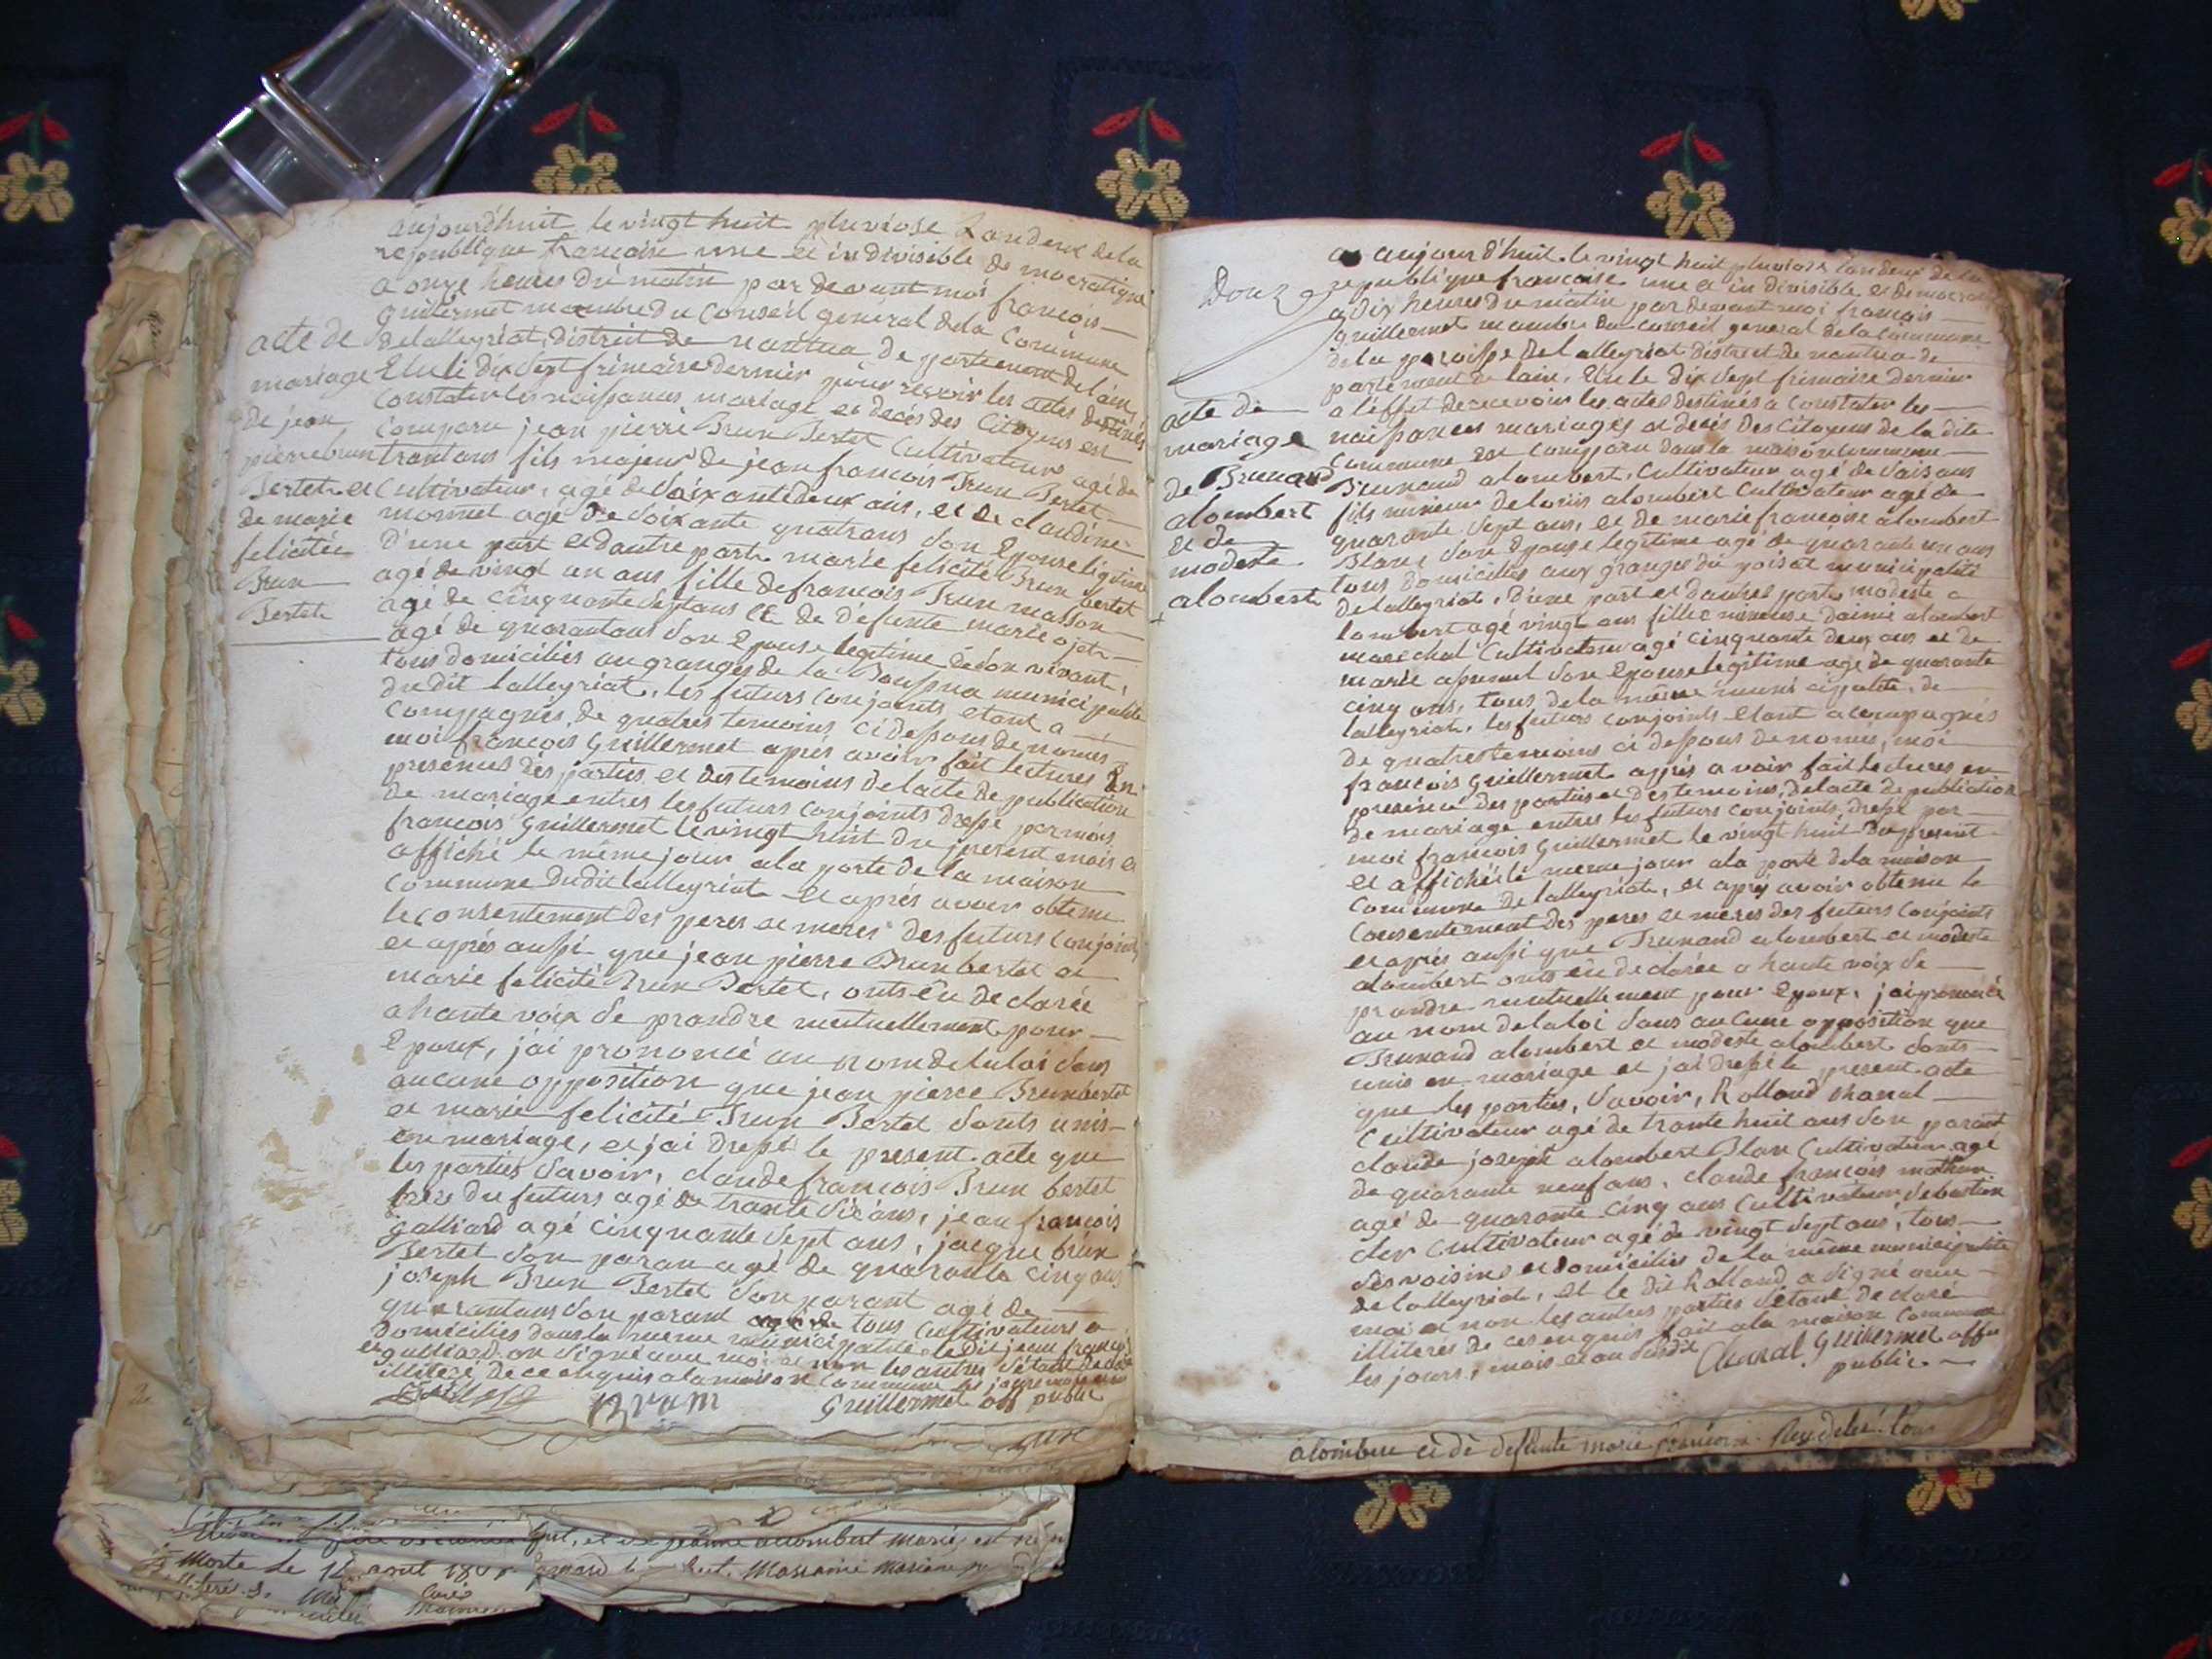 aujourd'huit le vingt huit pluviose Landeux de la
republique francoise une et indivisible de mocratique
a onze heures du matin par devant moi francois
guillermet membre du Conseil general de la Commune
delalleyriat, district de nantua de partement de lain,
Elu li dix sept frimaire dernier pour recevoir les actes destinés
Constater les naissances mariage et decès des Citoyens est
comparu jean pierre Brun Bertet Cultivateur agé de
trantans fils majeur de jean francois Brun Bertet
Cultivateur, agé de Soixantedeux ans, et de claudine
monnet agé de Soixante quatrans son Epouse ligitime
d'une part et dautre part marie felicité Brun bertet
agé de vingt un ans fille de francois Brun masson
agé de cinquante Septans et de defunte marie ojet
agé de quarantans Son Epouse legitime de son vivant,
tous domiciliés au granges de la municipalité
du dit lalleyriat, les futurs conjoints etant a
compagnés, de quatres temoins ci dessous denomés
moi francois Guillermet apres avoir fait lectures En
presences des parties et des temoins de lacte de publication
de mariage entres les futurs conjoints dressé par moi
francois Guillermet le vingt huit du present mois et
affiché le même jour ala porte de la maison
commune dudit lalleyriat et aprés avoir obtenu
le consentement des peres et meres des futurs conjoints
et aprés aussi que jean pierre Brun bertet et
marie felicité Brun Bertet, onts Eu declarée
a haute voix de prandre mutuellement pour
Epoux, jai prononcé au nom de la loi Sans
aucune opposition que jean pierre Brunbertet
et marie felicité Brun Bertet Sonts unis
en mariage, et jai dressé le present acte que
les parties Savoir, claude francois Brun bertet
frere du futurs agé de trante Six ans, jean francois
galliard agé cinquante Sept ans, jacque brun
Bertet Son paran agé de quarante cinq ans
joseph Brun Bertet Son parant agé de
quarantans Son parant tous Cultivateurs
domiciliés dans la meme municipalité ledit jean francois
galliard on Signé avec moi et non les autres
illiteré de ce enquis a la maison Commune
Brun Guillermet off public
acte de
mariage
de jean
pierre brun
Bertet et
de marie
felicitée
Brun
Bertet
aujourd'huit le vingt huit pluviose Landeux de la
republique francaise une et indivisible et democra
a dix heures du matin par devant moi francois
guillermet membre du Conseil general de la Commune
de la paroisse de lalleyriat district de nantua de
partement de lain, Elu le dix Sept frimaire dernier
a l'effet de recevoir les actes destinés a Constater les
naissances mariages et decès des Citoyens de la dite
Commune est comparu dans la maison commune
Brunand alombert, Cultivateur agé de
fils mineur de alombert Cultivateur agé de
quarante Sept ans, et de marie francoise alombert
Blanc Son Epouse legitime agé de quarante un ans
tous domiciliés aux granges du poisat municipalité
delalleyriat, d'une part et dautres part modeste a
lombert agé vingt ans fille mineuse daimé alombert
marechal Cultivateur agé cinquante deux ans et de
marie Son Epouse legitime agé de quarante
cinq ans, tous de la même municipalité, de
lalleyriat, les futurs conjoints etant acompagnés
de quatres temoins ci dessous denomes, moi
francois Guillermet aprés avoir fait lectures en
presence des parties et des temoins, delacte de publication
de mariage entres les futurs conjoints, dressé par
moi francois Guillermet le vingt huit du present
et affiché le meme jour ala porte de la maison
commune de lalleyriat, et aprés avoir obtenu le
consentement des peres et meres des futurs conjoints
et aprés aussi que Brunand alombert et modeste
alombert onts eu declarée a haute voix de
prandre mutuellement pour Epoux, jai prononcé
au nom de la loi Sans aucune opposition que
Brunand alombert et modeste alombert Sonts
unis en mariage et jai dressé le present acte
que les parties, Savoir, Rolland chanal
Cultivateur agé de trante huit ans Son parant
claude joseph alombert Blan Cultivateur agé
de quarante neuf ans, claude francois
agé de quarante cinq ans Cultivateur Sebastien
Cultivateur agé de vingt Sept ans, tous
des voisins et domiciliés de la même municipalité
de lalleyriat, et le dit Rolland a Signé avec
moi et non les autres parties Setant declaré
illiteres de ces enquis fait ala maison Commune
les jours, mois et an Susdit Chanal Guillermet offi
public
Douze
acte de
mariage
de Brunand
alombert
et de
modeste
alombert
alombert et de defunte marie
Morte le août